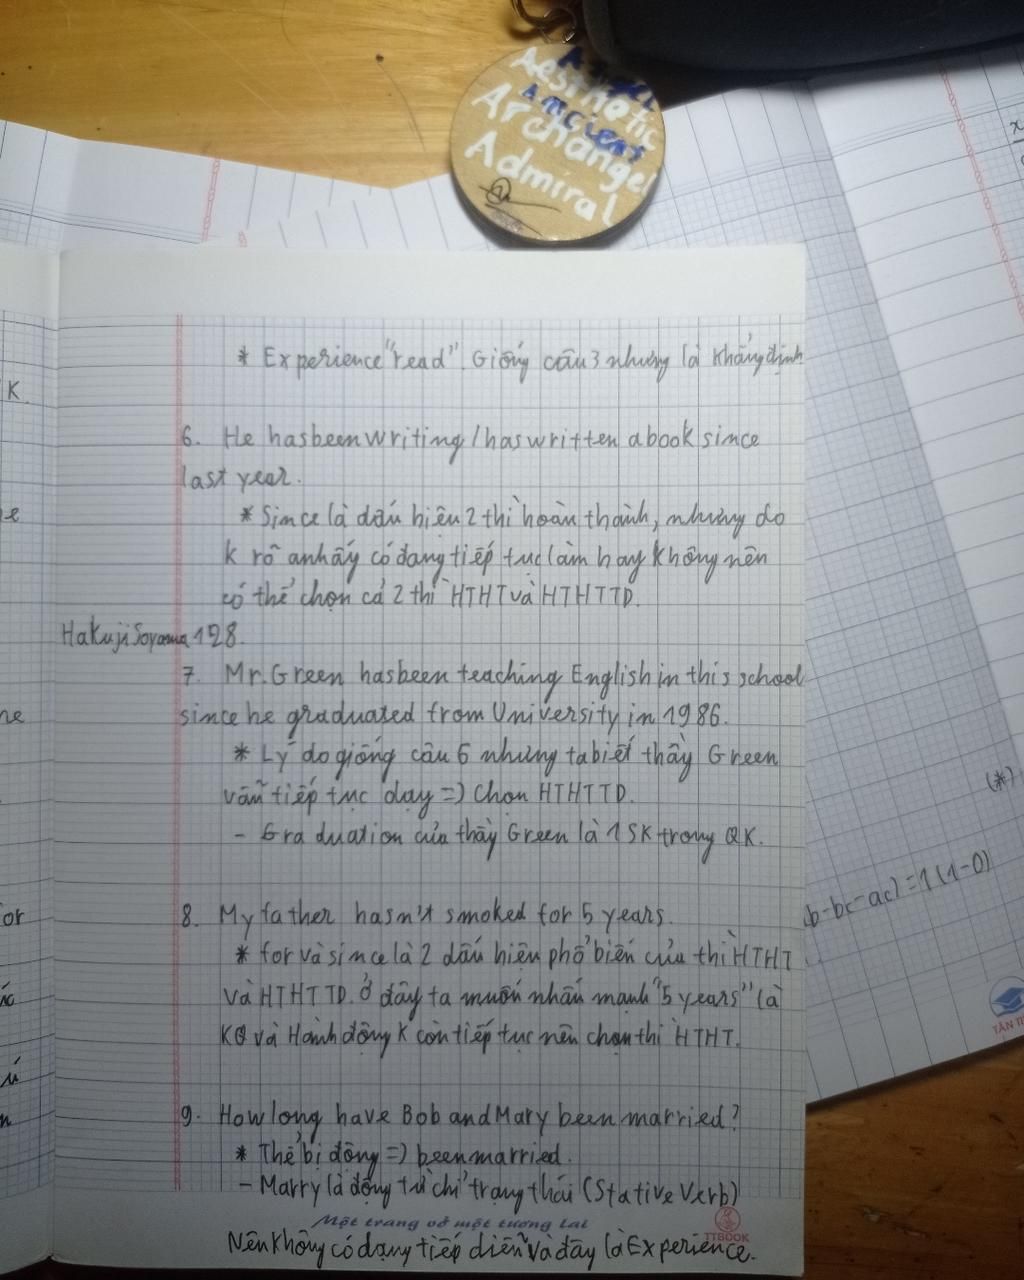 Aesthetic
Ancient
Archangel
Admiral
* Experience "read". Giống câu 3 nhưng là khẳng định
K.
6. He has been writing / has written a book since
last year.
* Since là dấu hiệu 2 thì hoàn thành, nhưng do
k rõ anh ấy có đang tiếp tục làm hay không nên
có thể chọn cả 2 thì HTHT và HTHTTD.
HakujiSoyama128.
7. Mr. Green has been teaching English in this school
since he graduated from University in 1986.
* Lý do giống câu 6 nhưng ta biết thầy Green
vẫn tiếp tục dạy => Chọn HTHTTD.
- Graduation của thầy Green là 1 SK trong QK.
(*)
b-bc-ac) = 1(1-0)
8. My father hasn't smoked for 5 years.
or
* for và since là 2 dấu hiệu phổ biến của thì HTHT
và HTHTTD. Ở đây ta muốn nhấn mạnh "5 years" là
KQ và Hành động K còn tiếp tục nên chọn thì HTHT.
TÂN TI
9. How long have Bob and Mary been married?
* Thể bị động => been married.
- Marry là động từ chỉ trạng thái (Stative Verb)
Một trang vở một tương lai
TTBOOK
Nên không có dạng tiếp diễn và đây là Experience.